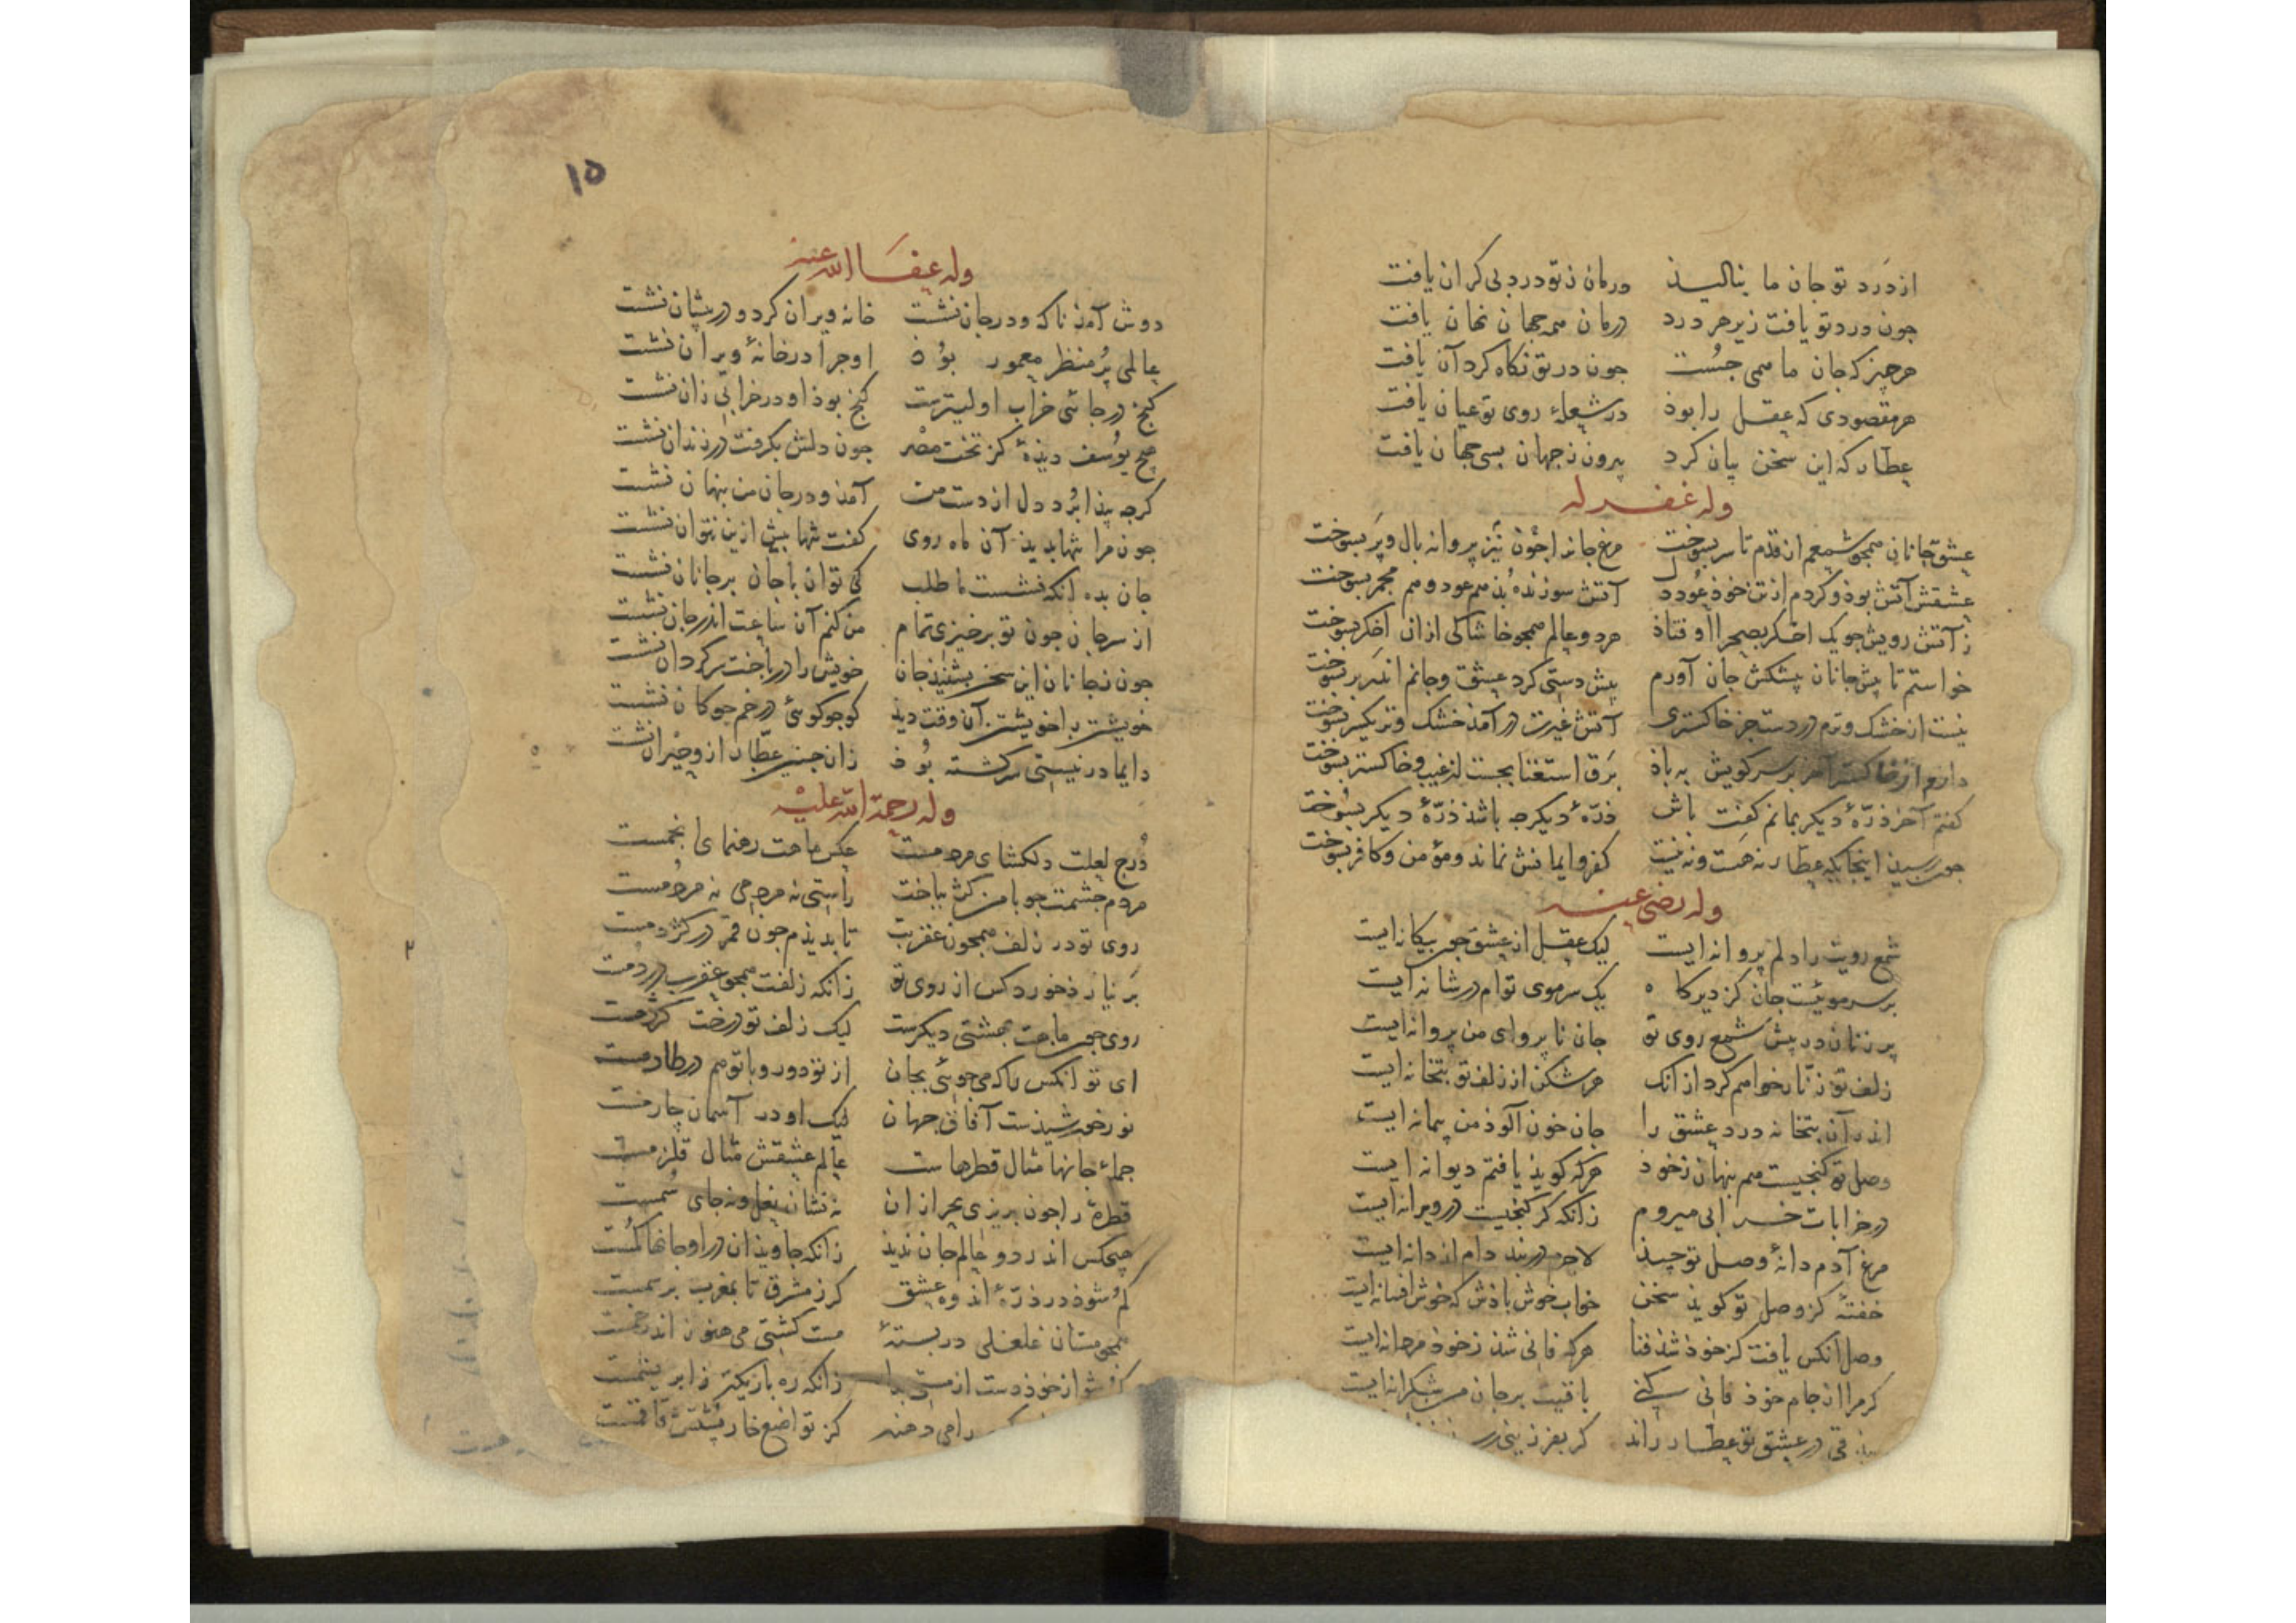 از درد تو جان ما بنالیذ درمان ز تو درد بی کران یافت
جون درد تو یافت زیر هر درد درمان همه جهان نهان یافت
هر چیز که جان ما همی جُست جون در تو نکاه کرد آن یافت
هر مقصودی که عقل را بوذ در شعلهٔ روی تو عیان یافت
عطار که این سخن بیان کرد بیرون ز جهان بسی جهان یافت
وله غفر له
عشق جانان همجو شمعم از قدم تا سر بسوخت مرغ جانرا جون نیز پروانه بال و پر بسوخت
عشقش آتش بوذ و کردم از تن خوذ عود دل آتش سوزنده بُذ هم عود و هم مجمر بسوخت
ز آتش رویش جو یک اخکر بصحرا اوفتاذ هر دو عالم همجو خاشاکی از ان اخکر بسوخت
خواستم تا پیش جانان پیشکش جان آورم پیش دستی کرد عشق و جانم اندر بر بسوخت
نیست از خشک و ترم در دست جز خاکستری آتش غیرت در آمذ خشک و تر یکسر بسوخت
دارم از خاکستر آخر بر سر کویش به باذ برق استغنا بجست از غیب و خاکستر بسوخت
کفتم آخر ذرّهٔ دیکر بمانم کفت باش ذرّهٔ دیکر جه باشذ ذرّهٔ دیکر بسوخت
جون رسیذ اینجایکه عطار نه هست و نه نیست کفر و ایمانش نماند و مؤمن و کافر بسوخت
وله رضی عنه
شمع رویت را دلم پروانه ایست لیک عقل از عشق جون بیکانه ایست
بر سر موئیست جان کز دیرکاه یک سر موی توام در شانه ایست
پر زنان در پیش شمع روی تو جان نا پروای من پروانه ایست
زلف تو زنّار خواهم کرد از انک هر شکن از زلف تو بتخانه ایست
اندر آن بتخانه درد عشق را جان خون آلوذ من پیمانه ایست
وصل تو کنجیست هم پنهان ز خوذ هرکه کویذ یافتم دیوانه ایست
در خرابات خرابی میروم زانکه کر کنجیست در ویرانه ایست
مرغ آدم دانهٔ وصل تو جیذ لاجرم در بند دام از دانه ایست
خفتهٔ کز وصل تو کویذ سخن خواب خوش باذش که خوش افسانه ایست
وصل آنکس یافت کز خوذ شذ فنا هرکه فانی شذ ز خوذ مردانه ایست
کر مرا از جام خوذ فانی کنی باقیت بر جان من شکرانه ایست
در عشق تو عطار راند کر بفرزینی
۱۵
وله عفا الله عنه
دوش آمذ ناکه و در جان نشست خانه ویران کرد و در پیشان نشست
عالمی پُر منظر معمور بوذ او جرا در خانهٔ ویران نشست
کنج در جائی خراب اولیترست کنج بوذ او در خرابی زان نشست
هیج یوسف دیذهٔ کز تخت مصر جون دلش بکرفت در زندان نشست
کرجه پیذا بُرد دل از دست من آمذ و در جان من پنهان نشست
جون مرا تنها بدیذ آن ماه روی کفت تنها بیش ازین نتوان نشست
جان بده آنکه نشست ما طلب کی توان با جان بر جانان نشست
از سر جان جون تو برخیزی تمام من کنم آن ساعت اندر جان نشست
جون ز جانان این سخن بشنیذ جان خویش را در باخت سرکردان نشست
خویشتن با خویشتن آن وقت دیذ کو جو کوئی در خم جوکان نشست
دایما در نیستی سرکشته بوذ زان جنین عطار ازو حیران نشست
وله رحمة الله علیه
دُرج لعلت دلکشای مردمست عکس ماهت رهنمای انجمست
مردم جشمت جو با من کژ بباخت راستی نه مردمی نه مردمست
روی تو در زلف همجون عقربت تا بدیذم جون قمر در کژدمست
بر نیارذ خورد کس از روی تو زانکه زلفت همجو عقرب در دمست
روی جون ماهت بهشتی دیکرست لیک زلف تو درخت کژدمست
ای تو آنکس را که می جوئی بجان از تو دور و با تو هم در طارمست
نور خورشیذست آفاق جهان لیک او در آسمان چارمست
جملهٔ جانها مثال قطرهاست عالم عشقش مثال قلزمست
قطرهٔ را جون بریزی بحر از ان نه نشان نعل و نه جای سُمست
هیجکس اندر دو عالم جان ندیذ زانکه جاویذان در او جانها کمست
کم شوذ در ذرّهٔ اندوه عشق کر ز مشرق تا بمغرب بر سمست
همجو مستان غلغلی در بستهٔ مست کشتی می هنوز اندر خمست
شو از خوذ دست از مستی زانکه ره باریکتر ز ابریشمست
را می دهند کز تواضع خار پشتش قاقمست
۲